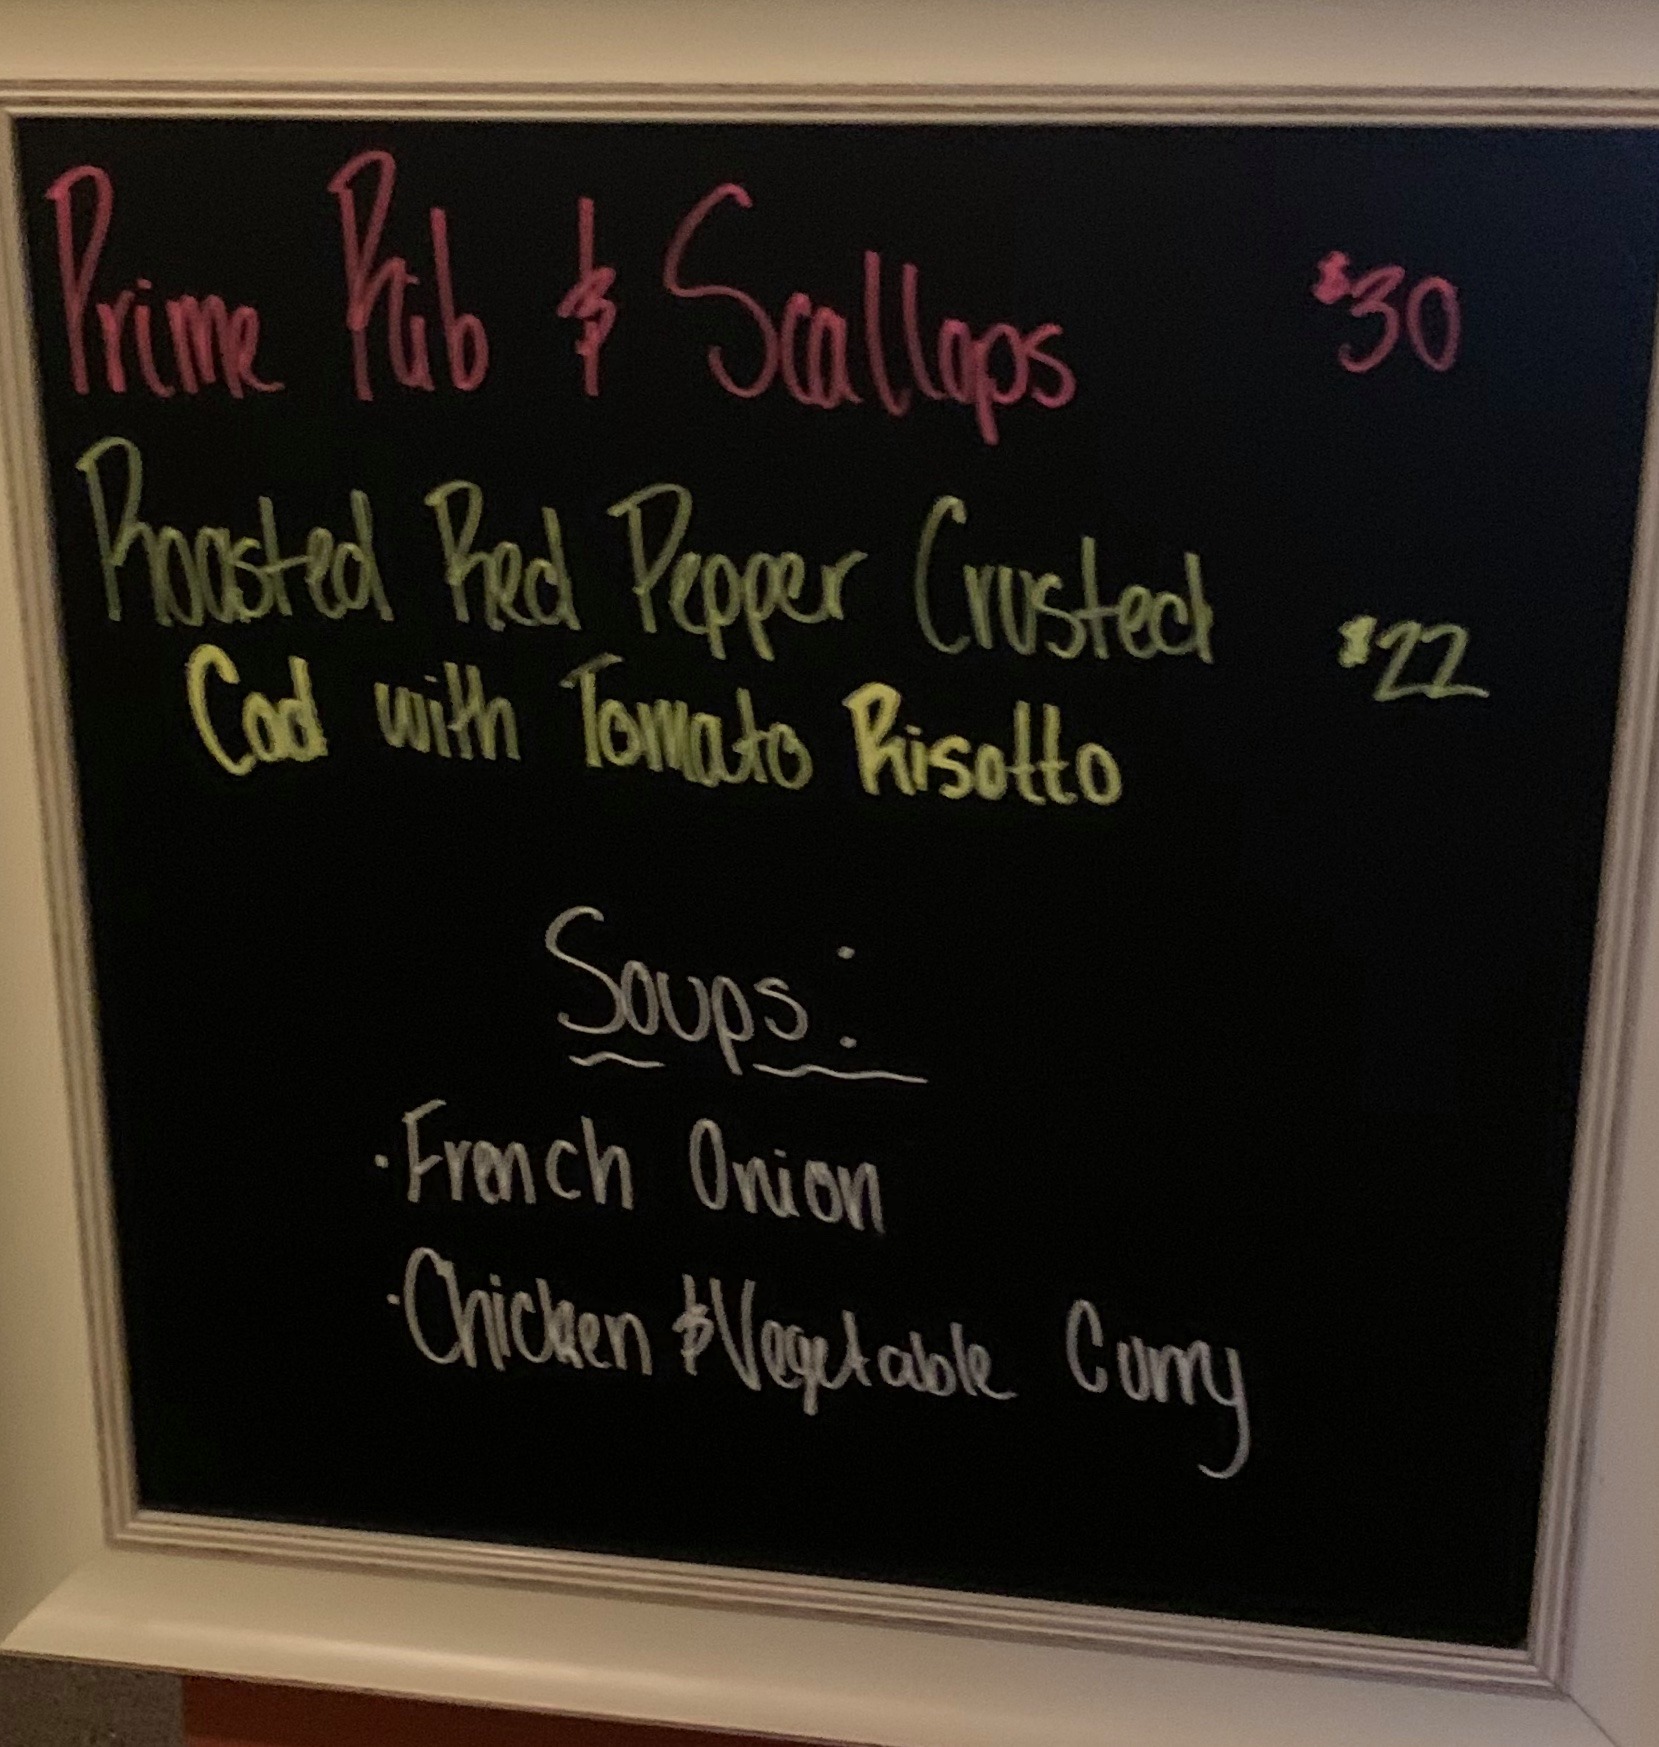 Prime Rib & Scallops $30
Roasted Red Pepper Crusted $22
Cod with Tomato Risotto
Soups:
· French Onion
· Chicken & Vegetable Curry